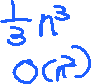 1/3 n³
O(n²)